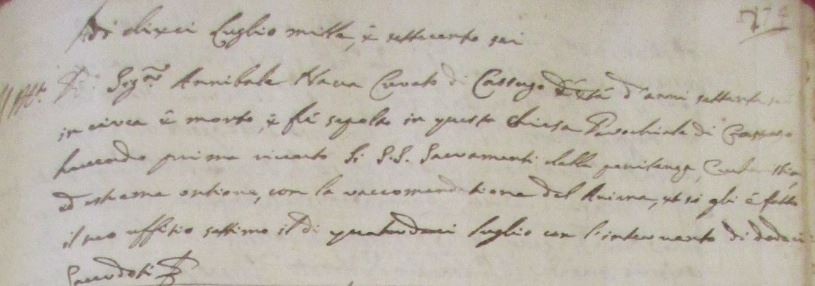 Adi dieci Luglio mille, è settecento sei
Il Sig.re Annibale Nava Curato di Cassago d'età d'anni settanta sei
in circa è morto, è fù sepolto in questa chiesa Parochiale di Cassago
havendo prima riceuto li S.S. Sacramenti della penitenza,
ed estrema ontione, con la raccomendatione del Anima, et si gli è fatto
il suo offitio settimo il dì quatordeci luglio con l'interuento di dodeci
Sacerdoti